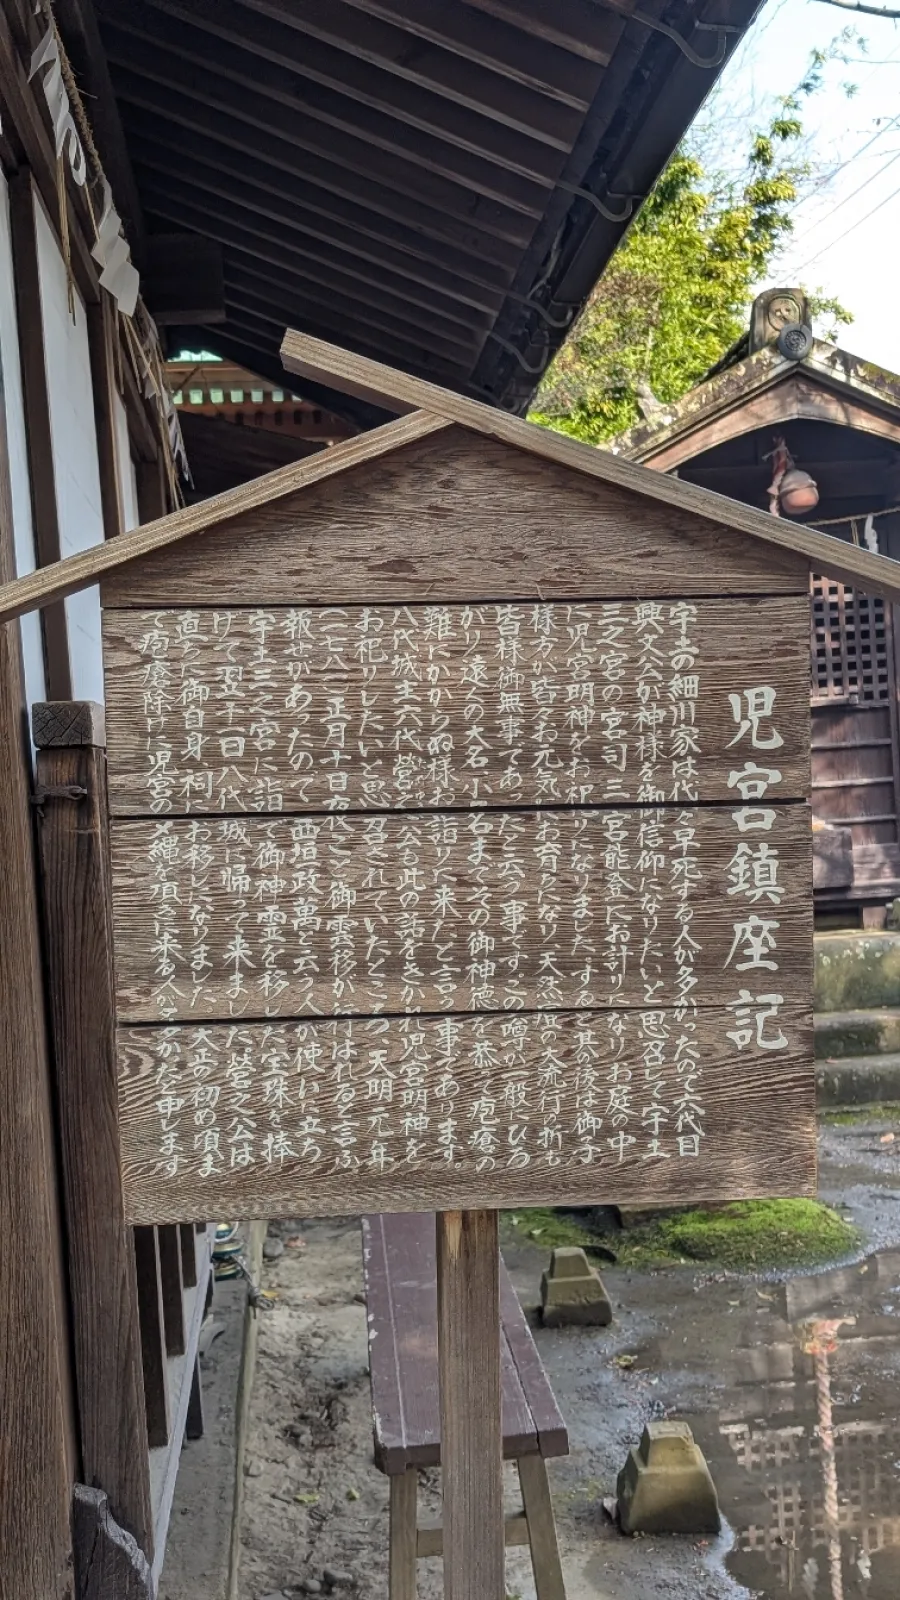 児宮鎮座記
宇土の細川家は代々早死する人が多かったので六代目
興文公が神様を御信仰になりたいと思召して宇土
三之宮の宮司三宮能登にお計りになりお庭の中
に児宮明神をお祀りになりました、すると其の後は御子
様方が皆々お元気にお育ちになり、天然痘の大流行の折も
皆様御無事であったと云う事です。この噂が一般にひろ
がり遠くの大名、小名までその御神徳を恭って疱瘡の
難にかからぬ様お詣りに来たと言う事であります。
八代城主六代営之公も此の話をきかれ児宮明神を
お祀りしたいと思召されていたところ、天明元年
(一七八一)正月十日夜ここ御霊移が行はれると言ふ
報せがあったので西垣政萬と云う人が使いに立ち
宇土三之宮に詣って御神霊を移した宝珠を捧
げて翌十一日八代城に帰って来ました営之公は
直ちに御自身祠にお移しになりました 大正の初め頃ま
で疱瘡除けに児宮の〆縄を頂きに来る人が多かたと申します